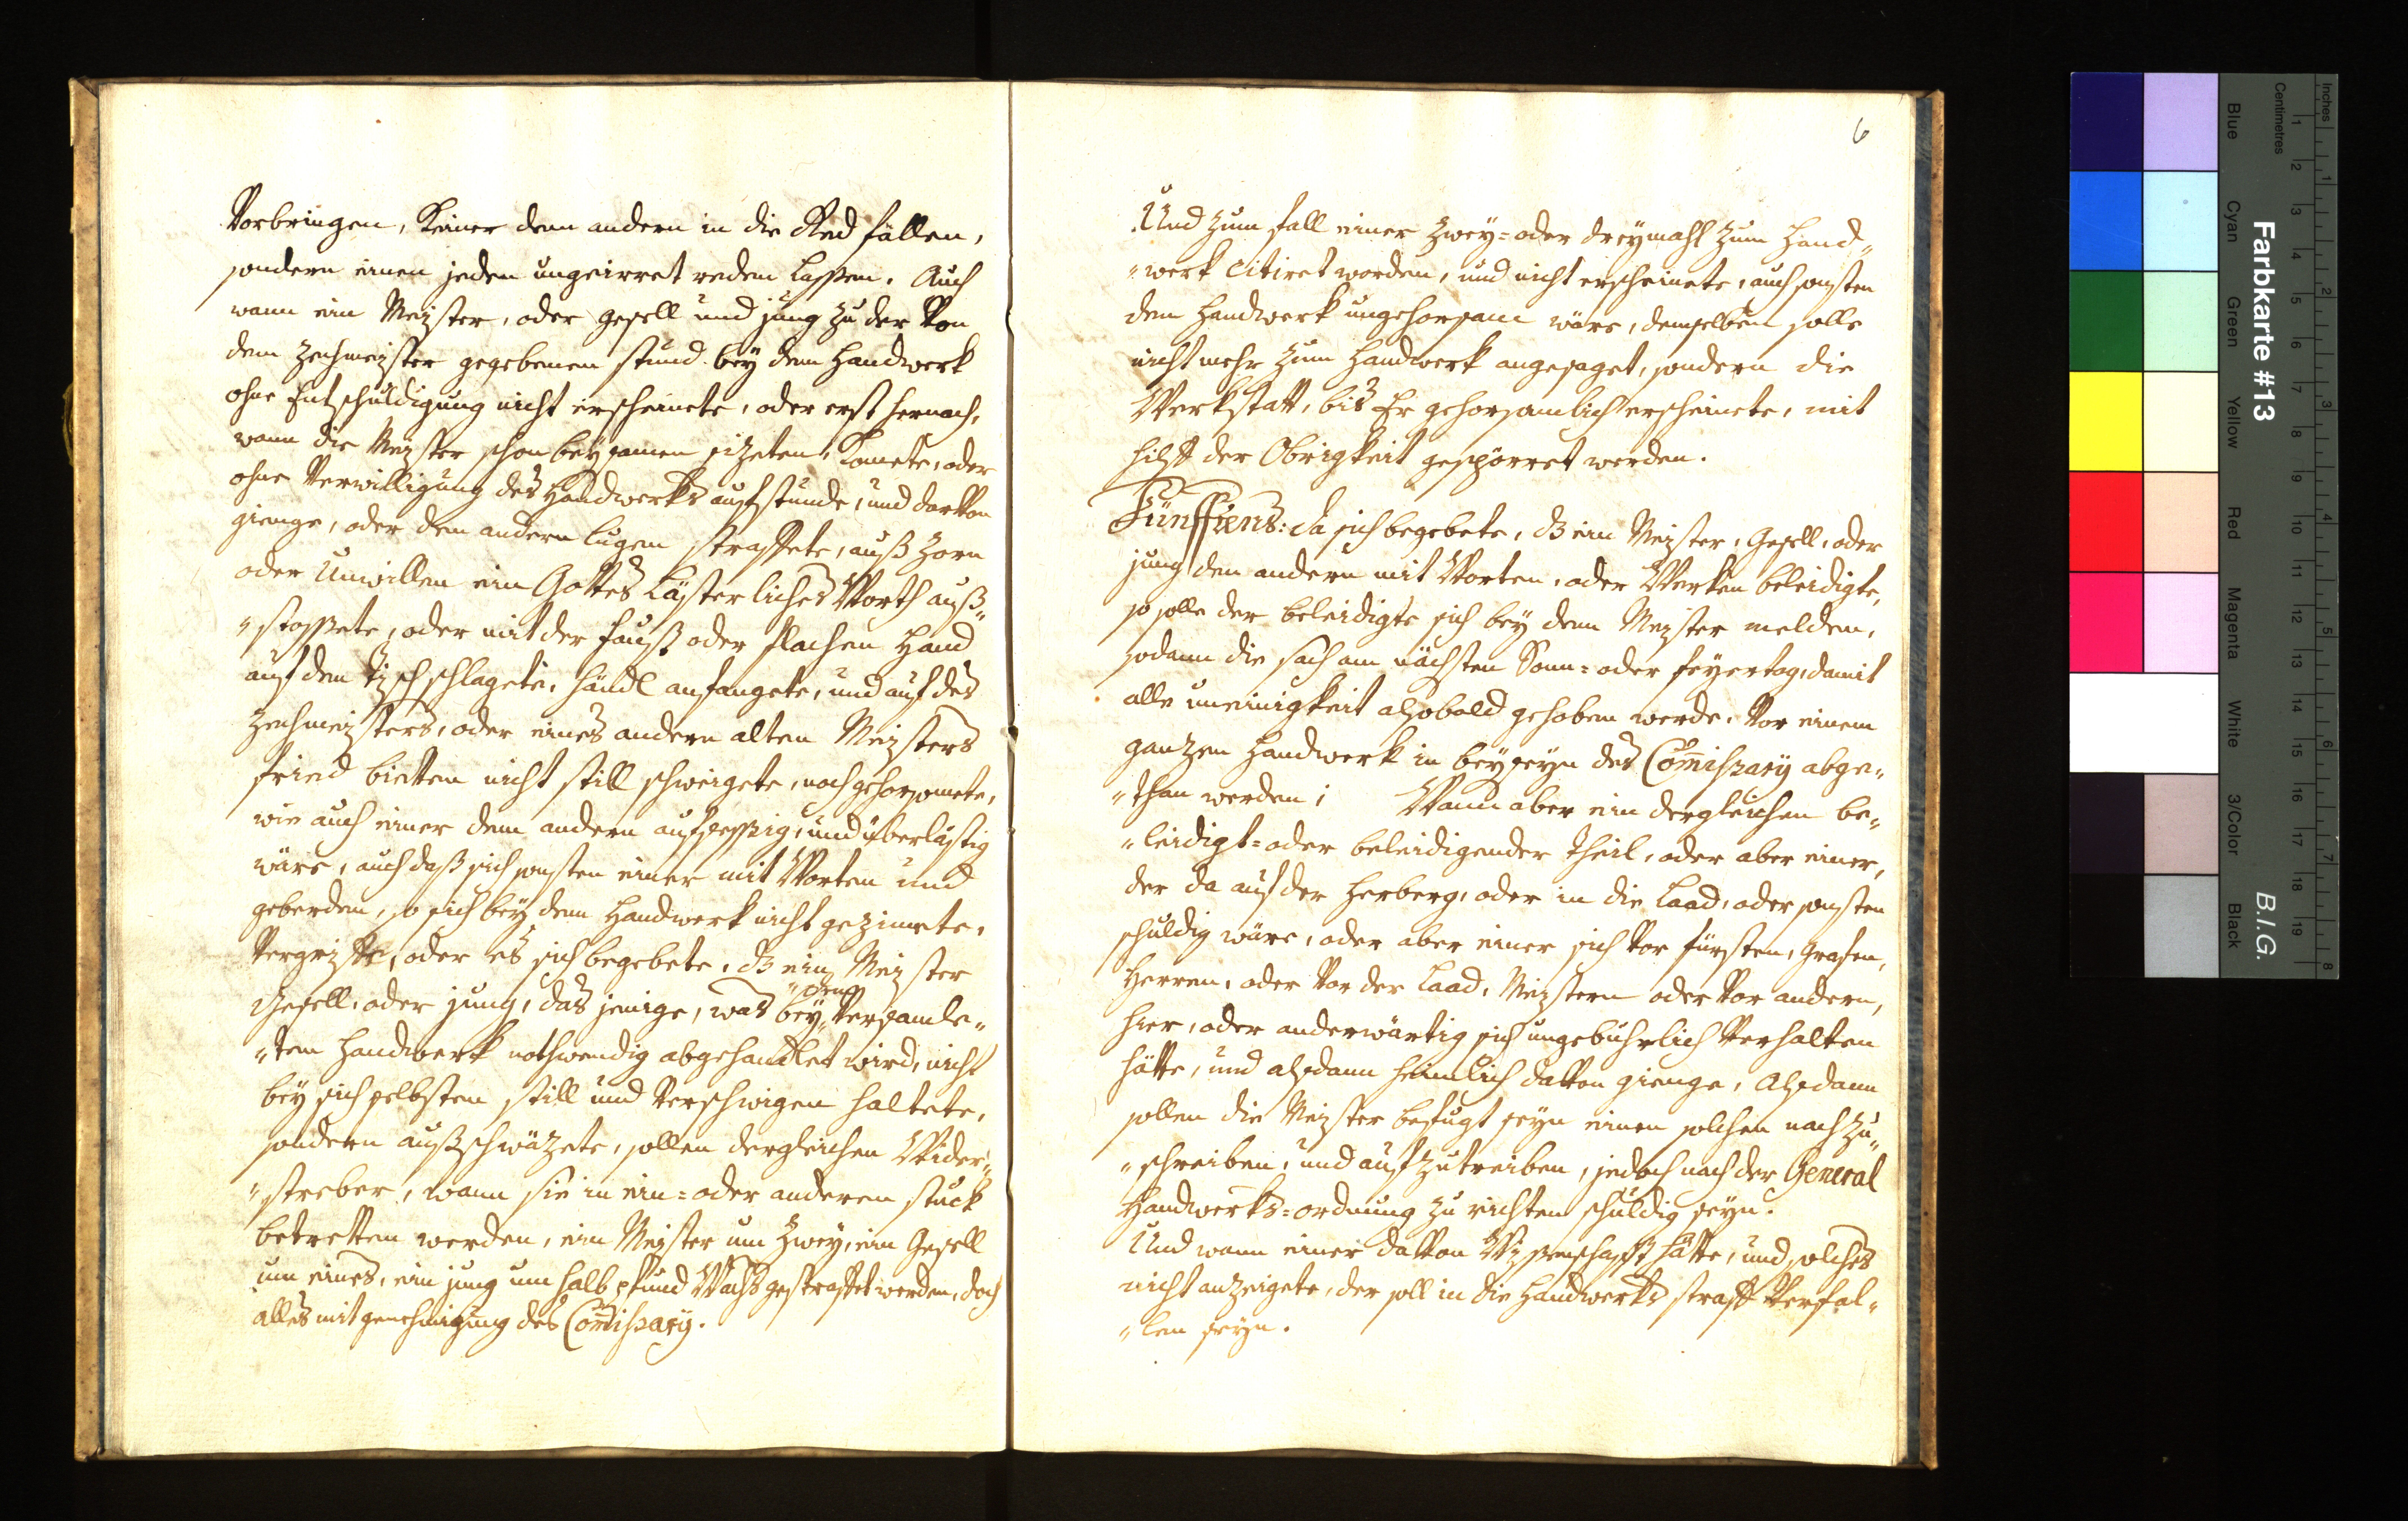 Vorbringen, Keiner dem andern in die Red fallen,
sondern einen jeden ungeirret reden lassen. Auch
wann ein Meister, oder gesell und jung zu der Von
dem Zechmeister gegebenen stund bey dem Handwerk
ohne Entschuldigung nicht erscheinete, oder erst hernach,
wann die Meister schon beysamen sizeten, Komete, oder
ohne Verwilligung des Handwerks aufstunde, und darVon
gienge, oder den andern lugen straffete, auß Zorn
oder Unwillen ein Gottes Lästerliches Worth auß„
„stossete, oder mit der faust oder flachen Hand
auf den Tisch schlagete, händl anfangete, und auf des
Zechmeisters, oder eines andern alten Meisters
fried bietten nicht still schweigete, noch gehorsamete,
wie auch einer dem andern aufsessig, und überlästig
wäre, auch daß sich sonsten einer mit Worten und
geberden, so sich bey dem Handwerk nicht gezimete,
Vergriffe, oder es sich begebete, dz ein Meister
Gesell, oder jung, das jenige, was bey Versamle„
„tem Handwerk nothwendig abgehandlet wird, nicht
bey sich selbsten still und Verschwigen haltete,
sondern außschwäzete, sollen dergleichen Wider„
„streber, wann sie in ein= oder anderen stuck
betretten werden, ein Meister um Zwey, ein Gesell
um eines, ein jung um halb pfund Wachs gestraffet werden, doch
alles mit genehmigung des Comissary.
6
Und Zum fall einer Zwey= oder dreymahl Zum Hand„
„werk citiret worden, und nicht erscheinete, auch sonsten
dem Handwerk ungehorsam wäre, demselben solle
nicht mehr Zum Handwerk angesaget, sondern die
Werkstatt, bis Er gehorsamlich erscheinete, mit
hilff der Obrigkeit gespörret werden.
Fünfftens: da sich begebete, dz ein Meister, Gesell, oder
jung den andern mit Worten, oder Werken beleidigte,
so solle der beleidigte sich bey dem Meister melden,
sodann die sach am nächsten Sonn= oder feyertag, damit
alle uneinigkeit alsobald gehoben werde, Vor einem
ganzen Handwerk in beyseyn des Comissary abge„
„than werden; Wann aber ein dergleichen be„
„leidigt= oder beleidigender theil, oder aber einer,
der da auf der Herberg, oder in die Laad, oder sonsten
schuldig wäre, oder aber einer sich Vor fürsten, Grafen,
Herren, oder Vor der Laad, Meistern oder Vor andern,
hier, oder anderwärtig sich ungebührlich Verhalten
hätte, und alsdann heimlich daVon gienge, Alsdann
sollen die Meister befugt seyn einen solchen nach zu„
„schreiben, und aufzutreiben, jedoch nach der General
Handwerks=ordnung zu richten schuldig seyn.
Und wann einer daVon Wissenschafft hätte, und solches
nicht anzeigete, der soll in die Handwerks straff Verfal„
„len seyn.